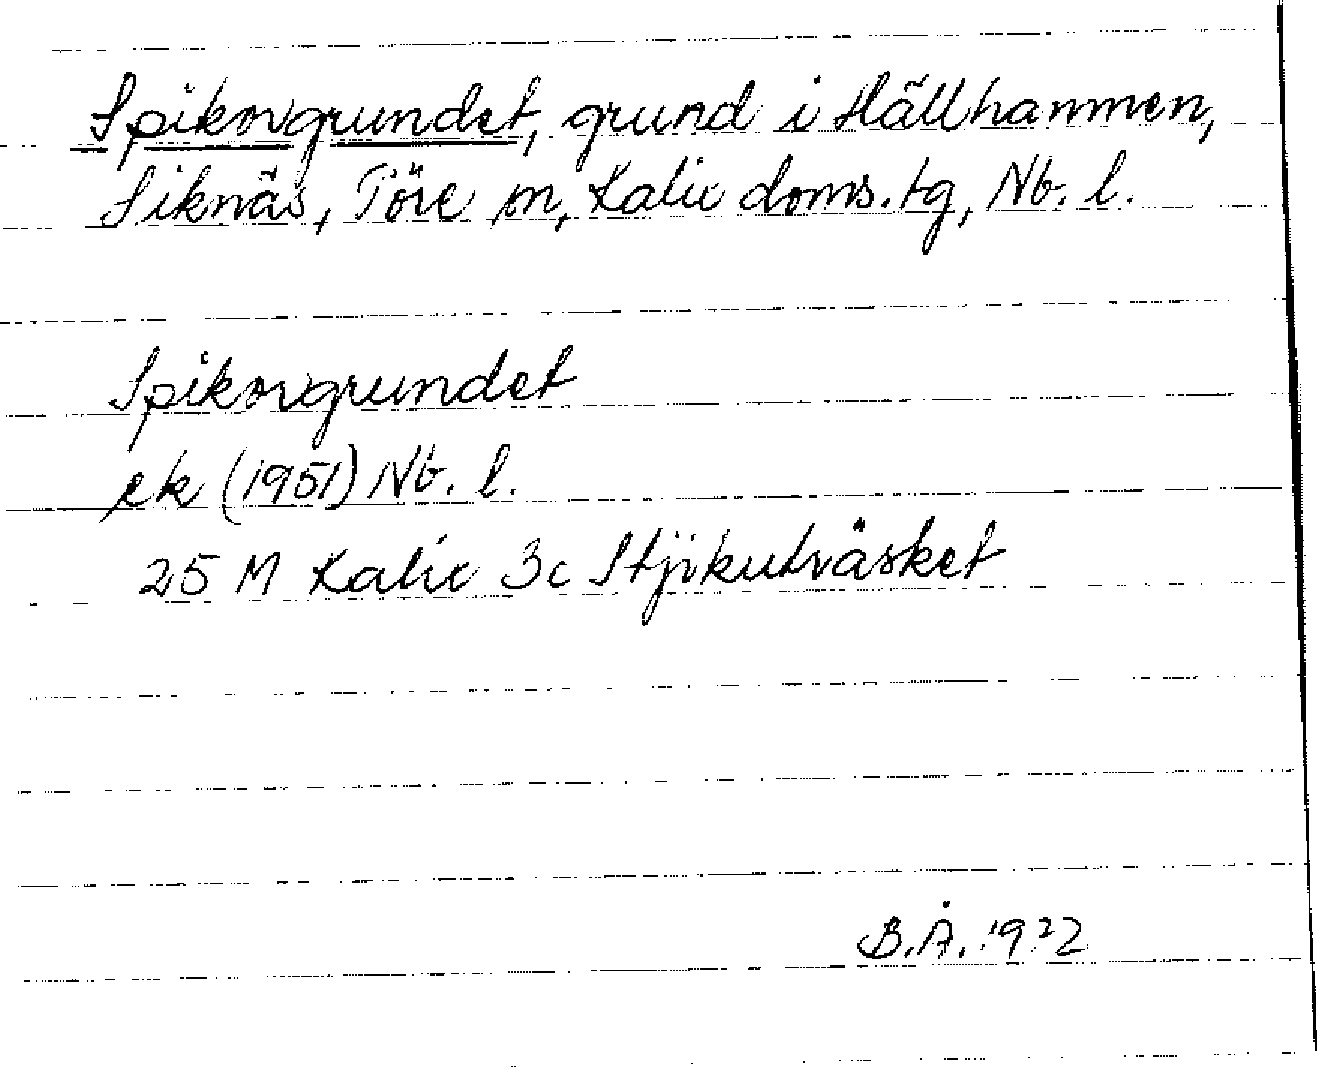 Spikovgrundet, grund i Hällhamnen,
Siknäs, Töre sn, Kalix doms.tg, Nb. l.
Spikovgrundet
ek (1951) Nb. l.
25 M Kalix 3c Stjikutväsket
B.Å. 1972